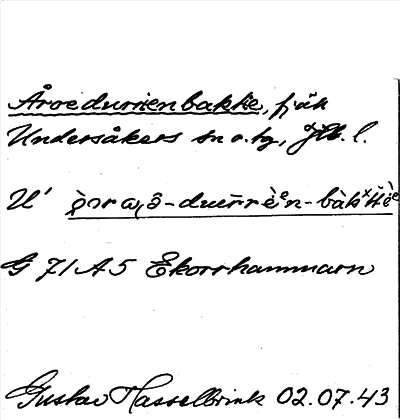 Åroedurrienbakkie, fjäll
Undersåkers sn o. tg, Jtl. l.
U'
G 71 A5 Ekorrhammarn
Gustav Hasselbrink 02.07.43